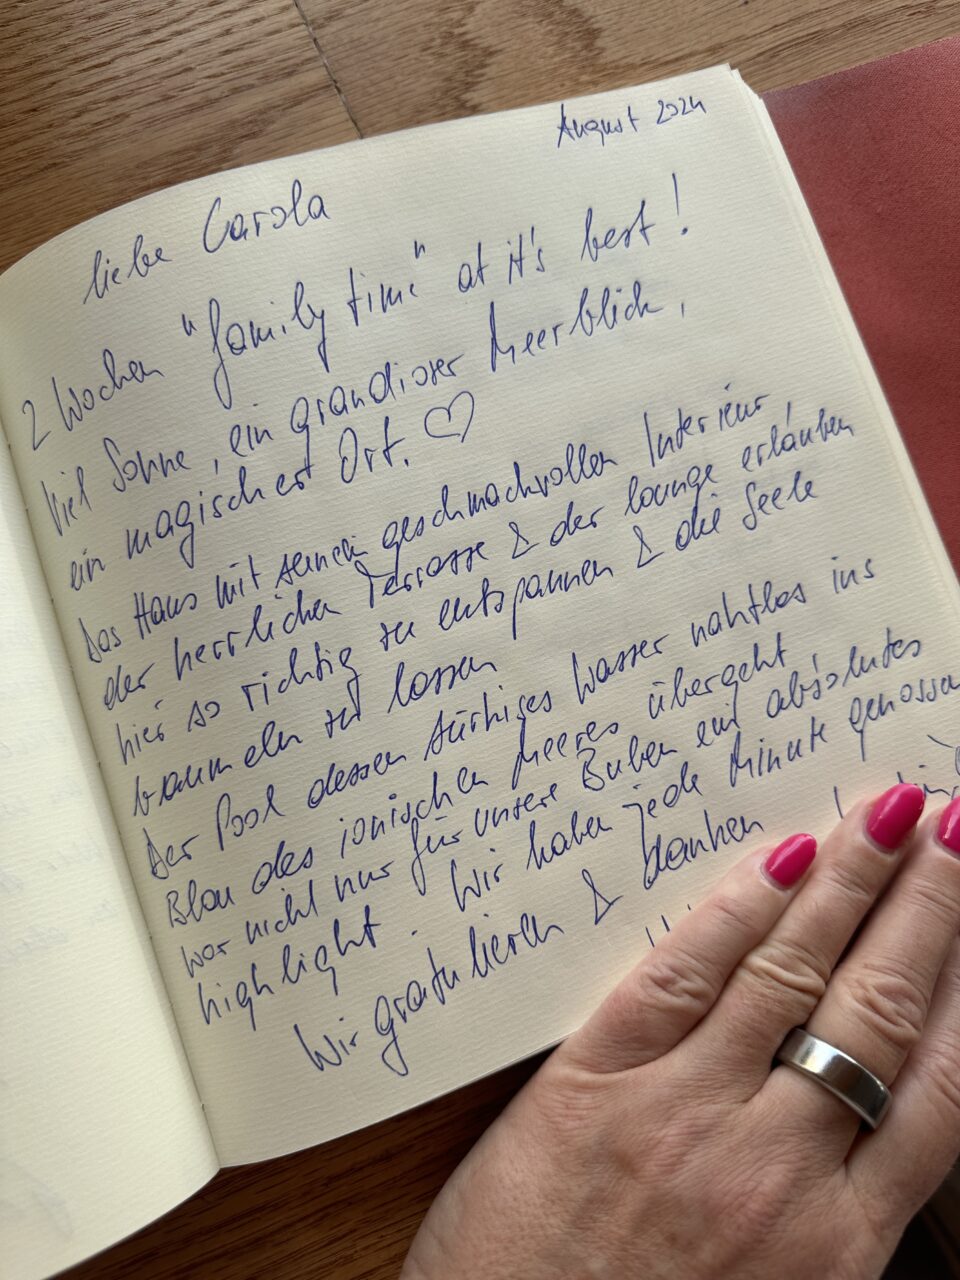 August 2024
liebe Carola
2 Wochen "family time" at it's best!
Viel Sonne, ein grandioser Meerblick,
ein magischer Ort. ♡
Das Haus mit seinem geschmackvollen Interieur,
der herrlichen Terrasse & der lounge erlauben
hier so richtig zu entspannen & die Seele
baumeln zu lassen
Der Pool dessen türkises Wasser nahtlos ins
Blau des ionischen Meeres übergeht,
war nicht nur für unsere Buben ein absolutes
highlight. Wir haben jede Minute genossen
Wir gratulieren & danken